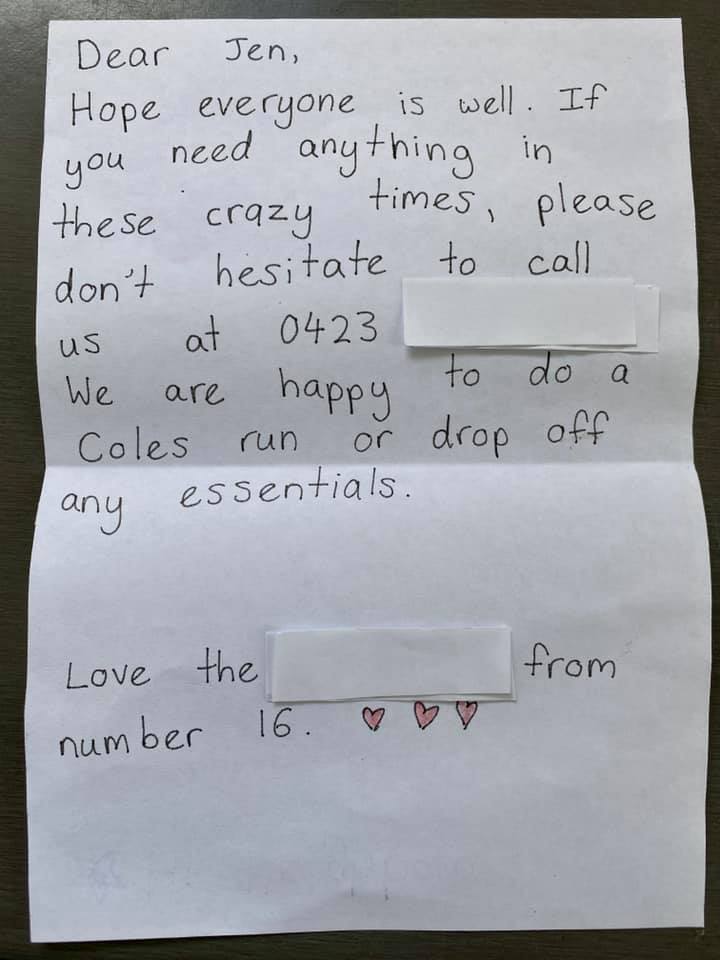 Dear Jen,
Hope everyone is well. If
you need anything in
these crazy times, please
don't hesitate to call
us at 0423
We are happy to do a
Coles run or drop off
any essentials.
Love the from
number 16.